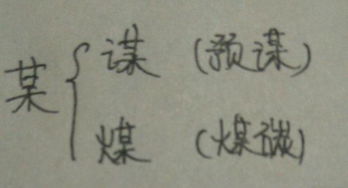 某
谋 (预谋)
煤 (煤碳)